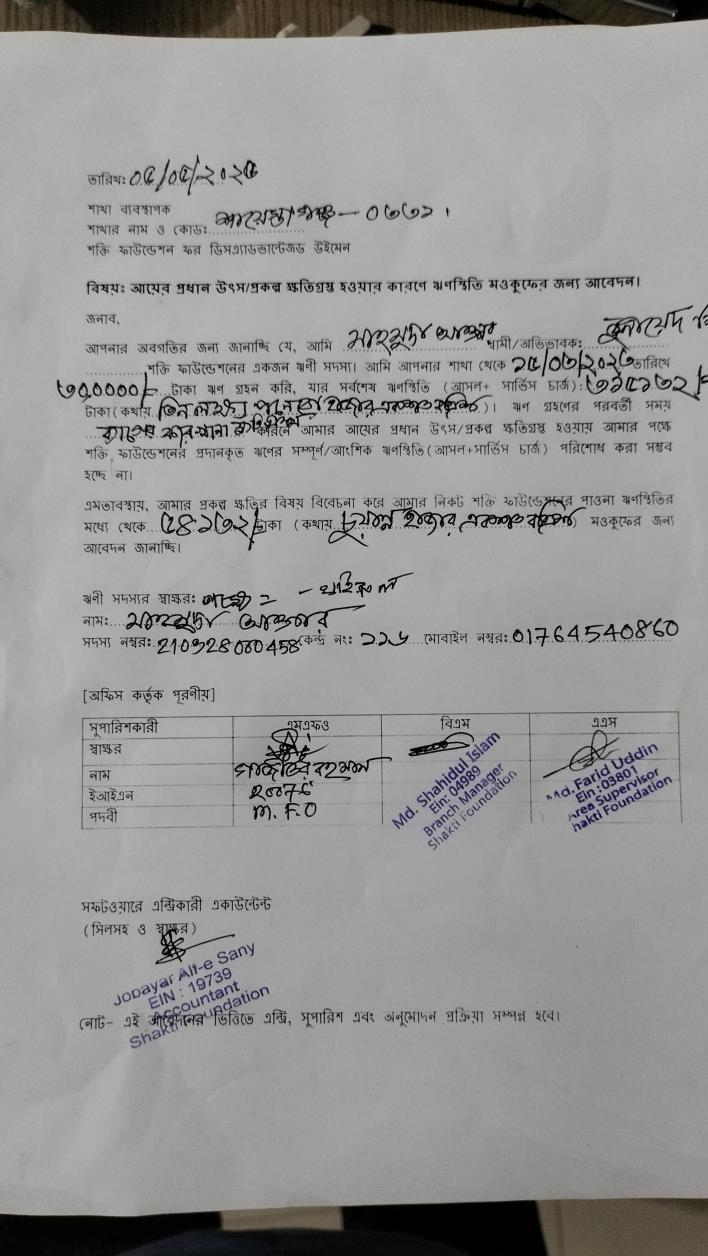 তারিখ: ০৫/০৫/২০২৫
শাখা ব্যবস্থাপক
শাখার নাম ও কোড: শায়েস্তাগঞ্জ - ০৩৩১
শক্তি ফাউন্ডেশন ফর ডিসএ্যাডভান্টেজড উইমেন
বিষয়: আয়ের প্রধান উৎস/প্রকল্প ক্ষতিগ্রস্থ হওয়ার কারণে ঋণস্থিতি মওকুফের জন্য আবেদন।
জনাব,
আপনার অবগতির জন্য জানাচ্ছি যে, আমি মাহমুদা আক্তার স্বামী/অভিভাবক:
শক্তি ফাউন্ডেশনের একজন ঋণী সদস্য। আমি আপনার শাখা থেকে তারিখে
৩০০০০০/- টাকা ঋণ গ্রহন করি, যার সর্বশেষ ঋণস্থিতি (আসল+ সার্ভিস চার্জ): ৩১৫১৩২/-
টাকা (কথায় তিন লক্ষ্য পনেরো হাজার একশত বত্রিশ)। ঋণ গ্রহণের পরবর্তী সময়
কারিনে আমার আয়ের প্রধান উৎস/প্রকল্প ক্ষতিগ্রস্থ হওয়ায় আমার পক্ষে
শক্তি ফাউন্ডেশনের প্রদানকৃত ঋণের সম্পূর্ণ/আংশিক ঋণস্থিতি (আসল+সার্ভিস চার্জ) পরিশোধ করা সম্ভব
হচ্ছে না।
এমতাবস্থায়, আমার প্রকল্প ক্ষতির বিষয় বিবেচনা করে আমার নিকট শক্তি ফাউন্ডেশনের পাওনা ঋণস্থিতির
মধ্যে থেকে ৫৪১৩২/- টাকা (কথায় চুয়ান্ন হাজার একশত বত্রিশ) মওকুফের জন্য
আবেদন জানাচ্ছি।
ঋণী সদস্যর স্বাক্ষর:
নাম: মাহমুদা আক্তার
সদস্য নম্বর: 210328000458 কেন্দ্র নং: ১১৬ মোবাইল নম্বর: 01764540860
[অফিস কর্তৃক পূরণীয়]
সুপারিশকারী এমএফও বিএম এএস
স্বাক্ষর
নাম
ইআইএন
পদবী M.F.O
Md. Shahidul Islam
Ein: 04989
Branch Manager
Shakti Foundation
Md. Farid Uddin
Ein: 03801
Area Supervisor
hakti Foundation
সফটওয়ারে এন্ট্রিকারী একাউন্টেন্ট
(সিলসহ ও স্বাক্ষর)
Jobayar Alf-e Sany
EIN : 19739
Accountant
Shakti Foundation
নোট- এই আবেদনের ভিত্তিতে এন্ট্রি, সুপারিশ এবং অনুমোদন প্রক্রিয়া সম্পন্ন হবে।